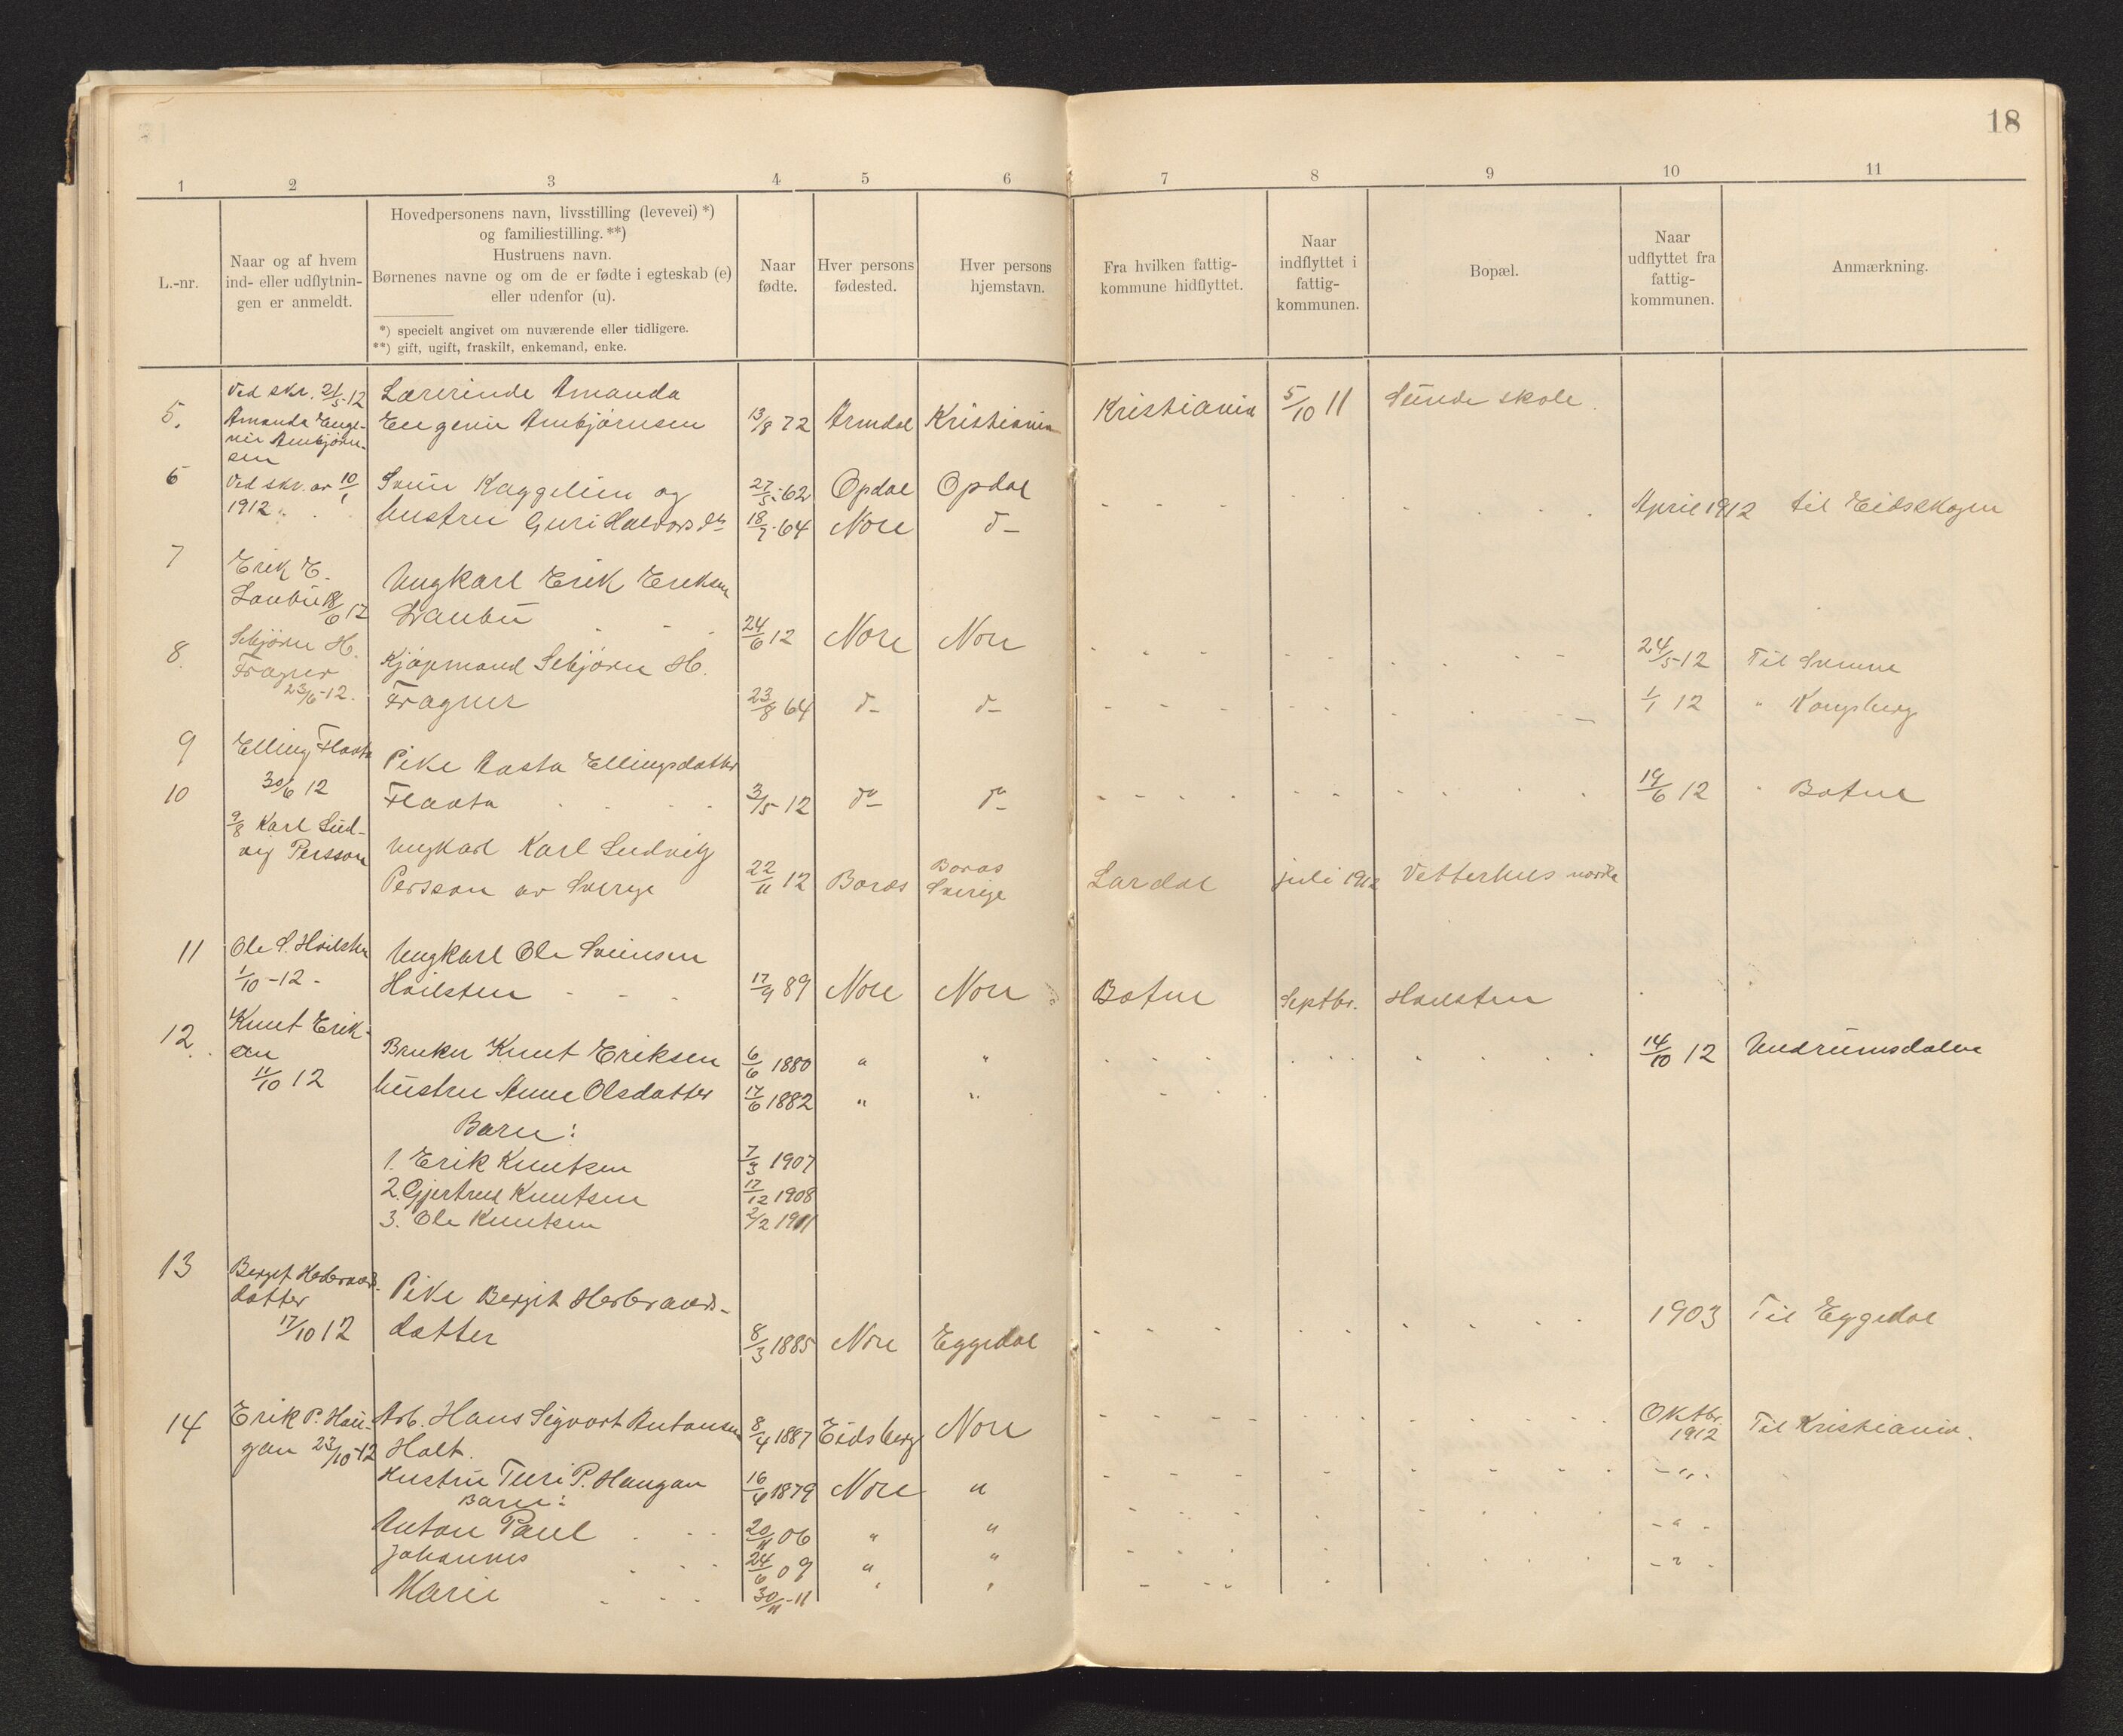 18
1 2 3 4 5 6 7 8 9 10 11
L.-nr.
Naar og af hvem
ind- eller udflytnin-
gen er anmeldt.
Hovedpersonens navn, livsstilling (levevei) *)
og familiestilling. **)
Hustruens navn.
Børnenes navne og om de er fødte i egteskab (e)
eller udenfor (u).
*) specielt angivet om nuværende eller tidligere.
**) gift, ugift, fraskilt, enkemand, enke.
Naar
fødte.
Hver persons
fødested.
Hver persons
hjemstavn.
Fra hvilken fattig-
kommune hidflyttet.
Naar
indflyttet i
fattig-
kommunen.
Bopæl.
Naar
udflyttet fra
fattig-
kommunen.
Anmærkning.
Ved skr. 21/5-12 Lærerinde Amanda
5. Amanda Euge- Eugenie Ambjørnsen 13/8 72 Arendal Kristiania Kristiania 5/10 11 Sunde skole
nie Ambjørn-
sen
6 Ved skr. av 10/1 Svein Kaggelien og 27/5-62 Opdal Opdal
1912 hustru Guri Halvorsdtr 18/7-64 Nore d- April 1912 til Eidskogen
7 Erik E. Ungkarl Erik Eriksen
18/6 12 24/6 12 Nore Nore 24/5-12 Til Svenne
8. Sebjørn H. Kjøpmand Sebjørn H.
Fragner
23/6-12. Fragner 23/8 64 d- d- 1/1 12 " Kongsberg
9 Elling Flaata Pike Aasta Ellingsdatter
30/6 12 Flaata 3/5-12 do do 19/6 12 " Botne
10 9/8 Karl Lud- Ungkarl Karl Ludvig
vig Persson Persson av Sverge 22/11 12 Boras Boras Sverige Lardal juli 1912 Vetterhus nordre
11 Ole S. Hvilsten Ungkarl Ole Sveinsen
1/10-12- Hvilsten 17/9 89 Nore Nore Botne Septbr. Hvilsten
12. Knut Erik-
sen Bruker Knut Eriksen 6/6 1880 " " 14/10 12 Undrumsdalen
11/10 12 hustru Anne Olsdatter 17/6 1882 " "
Barn:
1. Erik Knutsen 7/3 1907
2. Gjertrud Knutsen 17/12 1908
3. Ole Knutsen 2/2 1911
13 Bergit Hebrands-
datter Pike Bergit Herbrands-
17/10 12 datter 8/3 1885 Nore Eggedal 1903 Til Eggedal
14 Erik P. Hau- Arb. Hans Sigvart Antonsen 8/4 1887 Eidsberg Nore Oktbr. 1912 Til Kristiania.
gan 23/10-12 Holt.
Hustru Turi P. Haugan 16/4 1879 Nore " - " -
Barn:
Anton Paul 20/11 06 " " - " -
Johannes 24/6 09 " " - " -
Marie 30/11-11 " "